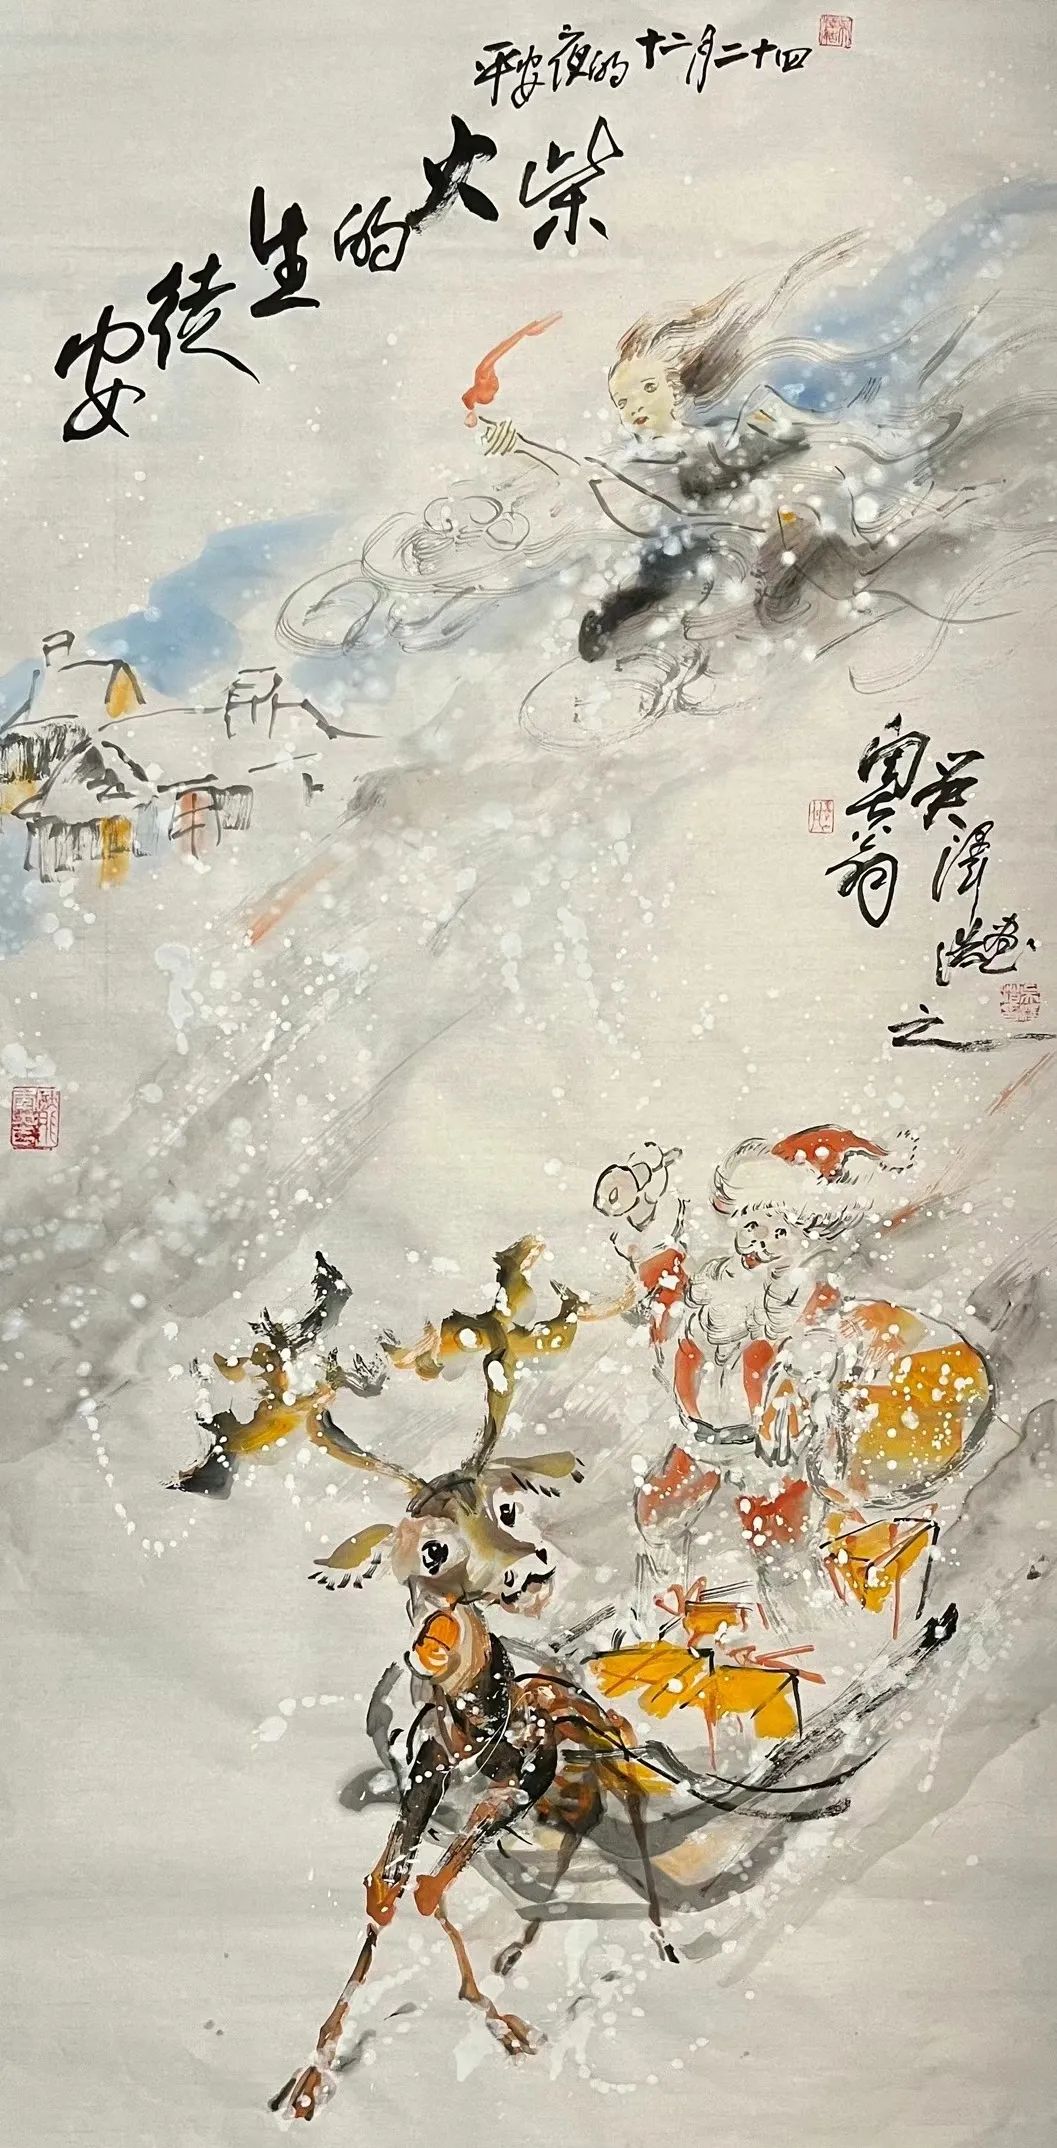 平安夜的十二月二十四
安徒生的火柴
粤翁
吴泽浩画
之